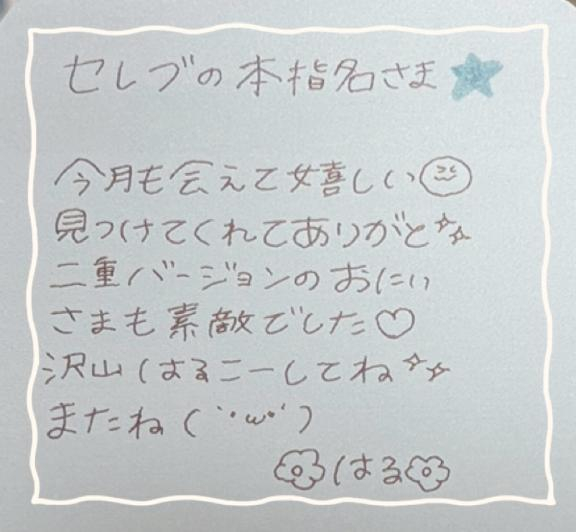 セレブの本指名さま
今月も会えて嬉しい
見つけてくれてありがと
二重バージョンのおにぃ
さまも素敵でした♡
沢山はるこーしてね
またね(´･ω･`)
はる